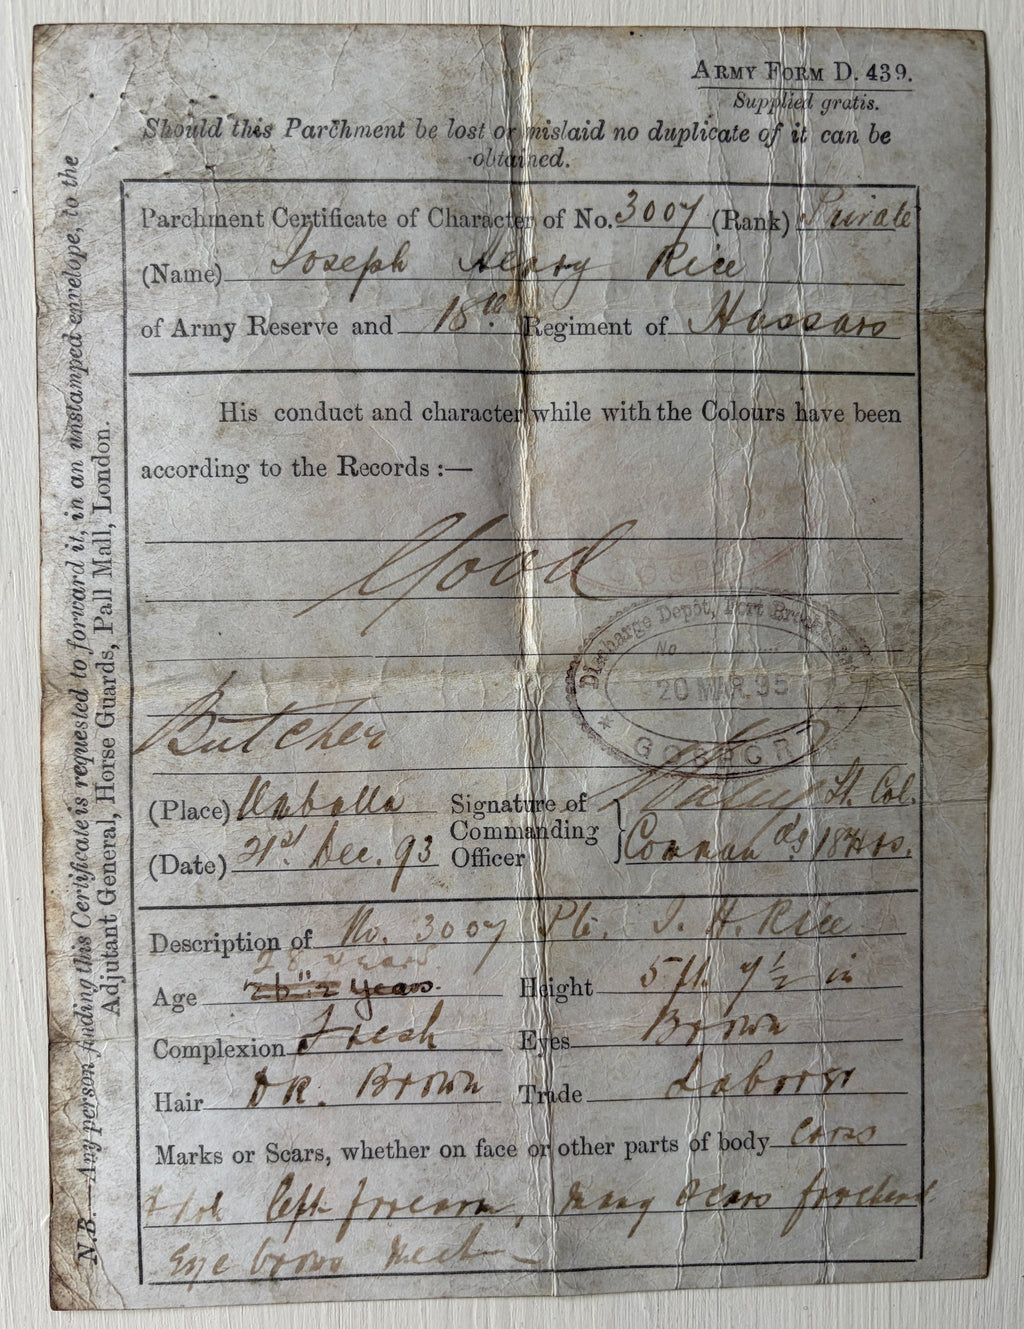 ARMY FORM D. 439.
Supplied gratis.
Should this Parchment be lost or mislaid no duplicate of it can be
obtained.
Parchment Certificate of Character of No. 3007 (Rank) Private
(Name) Joseph Henry Rice
of Army Reserve and 18th Regiment of Hussars
His conduct and character while with the Colours have been
according to the Records :—
Good
Discharge Depôt, Fort
No
20 MAR. 95
GOSPORT
Butcher
(Place) Umballa Signature of Lt. Col.
Commanding
(Date) 21st Dec. 93 Officer Commandg 18 Hrs.
Description of No. 3007 Pte. J. H. Rice
28 years
Age years. Height 5 ft. 7 1/2 in
Complexion Fresh Eyes Brown
Hair DK. Brown Trade Laborer
Marks or Scars, whether on face or other parts of body Cross
left forearm, Many Scars forehead
Eye brows Neck
N.B.—Any person finding this Certificate is requested to forward it, in an unstamped envelope, to the
Adjutant General, Horse Guards, Pall Mall, London.